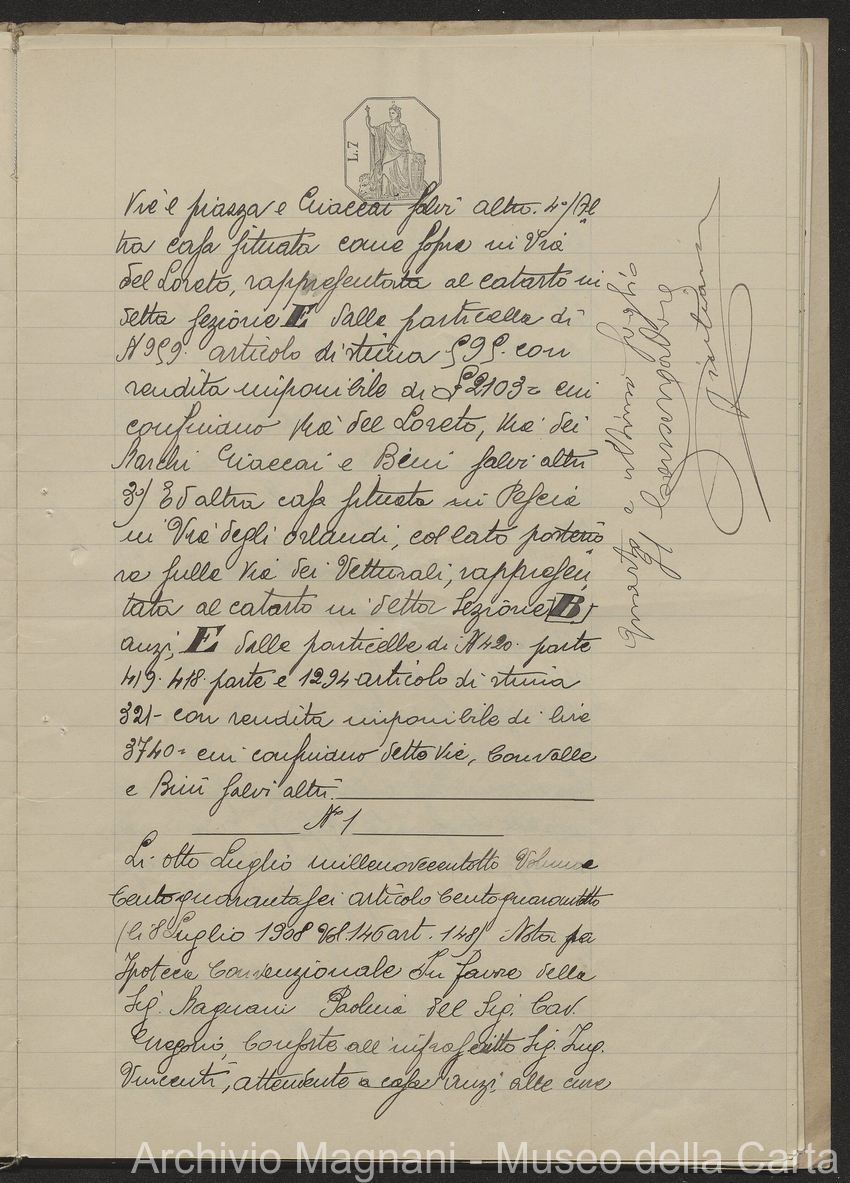 L.7
Via e piazza e Ciaccai salvi altri. 4°/ Al
tra casa situata come sopra in Via
del Loreto, rappresentata al catasto in
detta sezione E dalla particella di
N 959. articolo di stima 595. con
rendita imponibile di £2103= cui
confinano Via del Loreto, Via dei
Marchi Ciaccai e Bini salvi altri
3°/ Ed altra casa situata in Pescia
in Via degli Orlandi, col lato posterio
re sulla Via dei Vetturali, rappresen
tata al catasto in detta Sezione (B)
anzi, E dalle particelle di N 420. parte
419. 418. parte e 1294 articolo di stima
321- con rendita imponibile di lire
3740= cui confinano dette Vie, Convalle
e Bini salvi altri.
N° 1
Li otto Luglio millenovecentotto Volume
Centoquarantasei articolo Centoquarantotto
(li 8 Luglio 1908 Vol. 146 art. 148) Nota per
Ipoteca Convenzionale In favore della
Sig. Magnani Paolina del Sig. Cav.
Gregorio, Consorte all'infrascritto Sig. Ing.
Vincenti, attendente a casa anzi alle cure
Quarto e ultimo foglio
Il Conservatore
Archivio Magnani - Museo della Carta